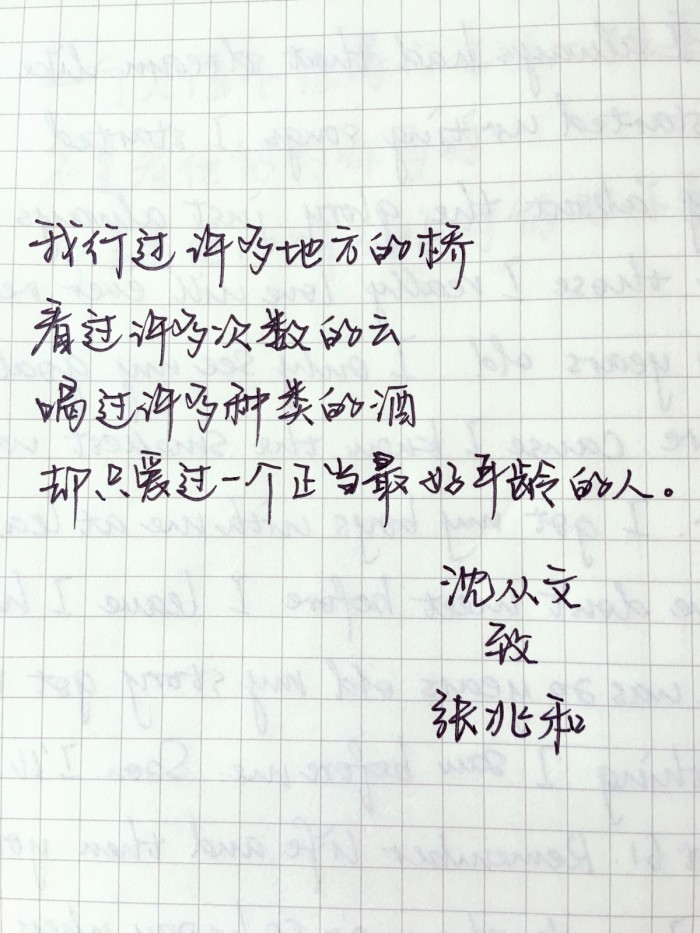 我行过许多地方的桥
看过许多次数的云
喝过许多种类的酒
却只爱过一个正当最好年龄的人。
沈从文
致
张兆和